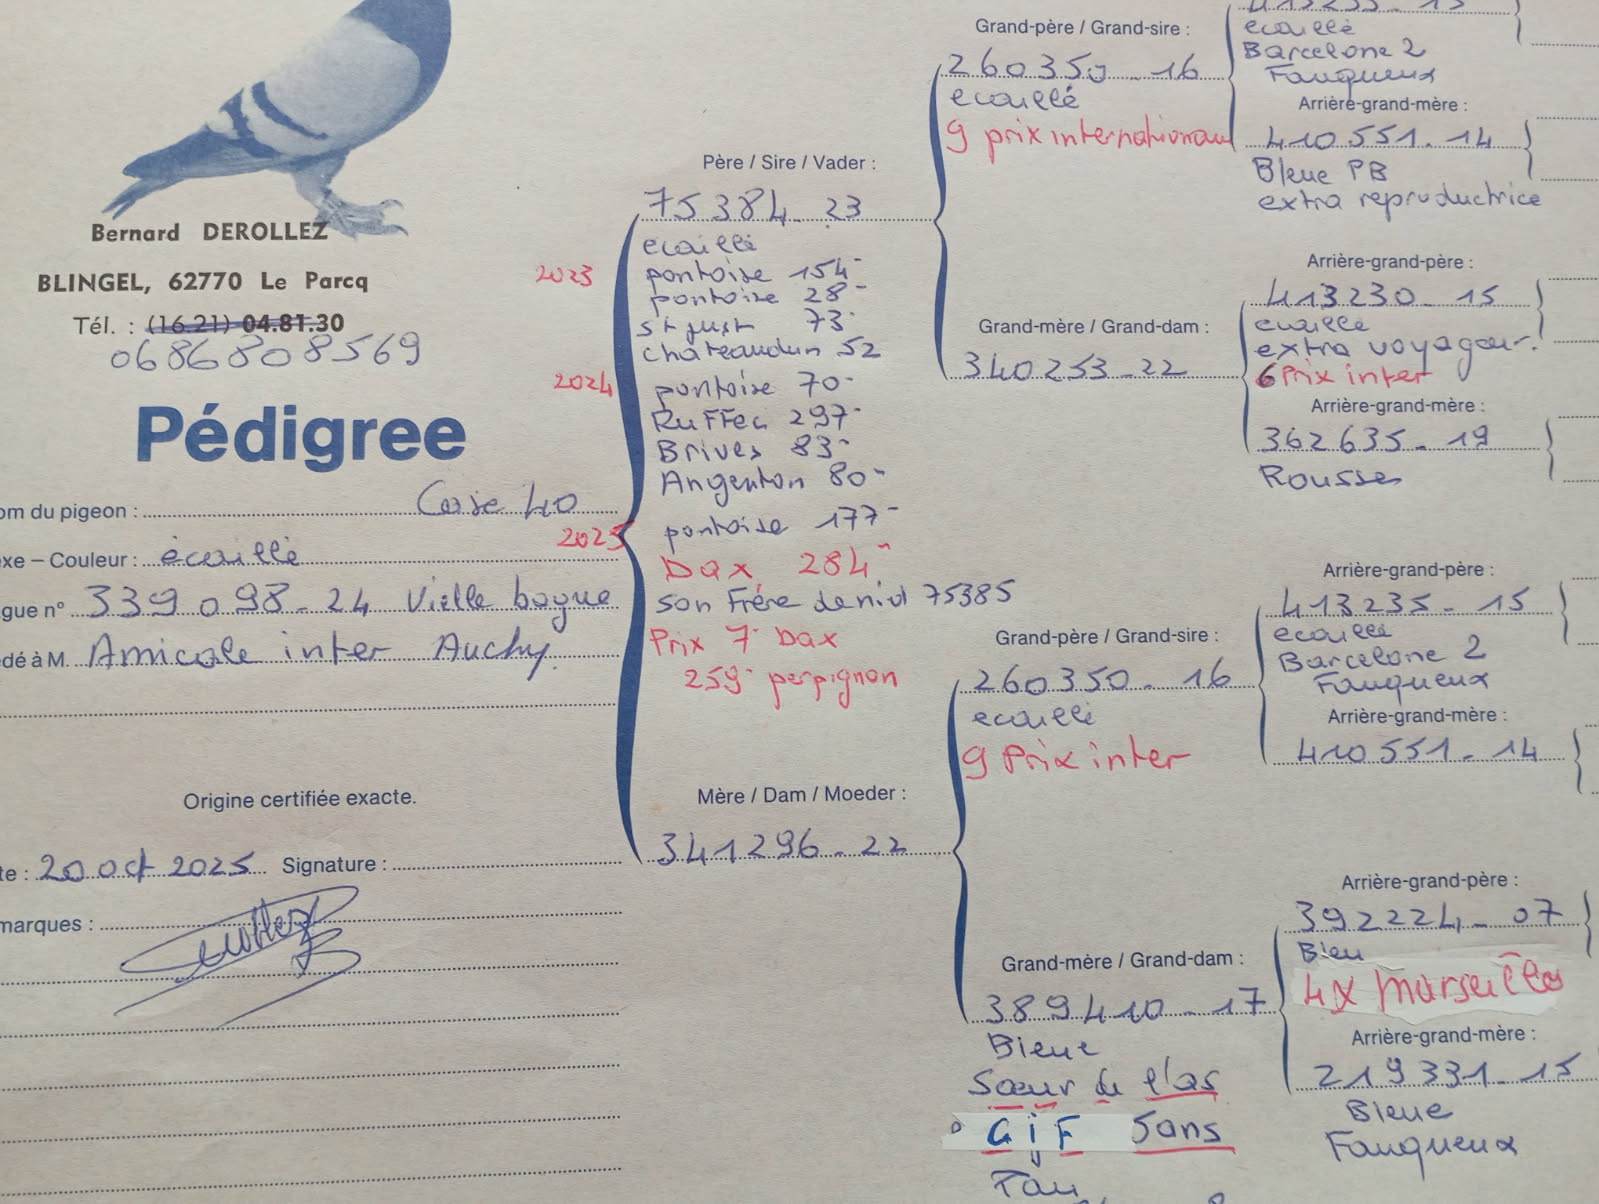 Bernard DEROLLEZ
BLINGEL, 62770 Le Parcq
Tél. : (16.21) 04.81.30
0686808569
Pédigree
om du pigeon : Case 40
xe – Couleur : écaillé
gue n° 339098-24 Vielle bague
dé à M. Amicale inter Auchy.
Origine certifiée exacte.
te : 20 oct 2025 Signature :
marques :
Père / Sire / Vader :
75384-23
ecaillé
2023 pontoise 154-
pontoise 28-
st just 73-
chateaudun 52
2024 pontoise 70-
Ruffec 297-
Brives 83-
Argenton 80-
pontoise 177-
2025 Dax 284-
son Frére de nid 75385
Prix 7- Dax
259- perpignan
Mère / Dam / Moeder :
341296-22
Grand-père / Grand-sire :
260350-16
ecaillé
9 prix internationaux
Grand-mère / Grand-dam :
340253-22
Grand-père / Grand-sire :
260350-16
ecaillé
9 Prix inter
Grand-mère / Grand-dam :
389410-17
Bleue
Sœur de l'as
GiF 5ans
413235-15
ecaillé
Barcelone 2
Fauqueux
Arrière-grand-mère :
410551-14
Bleue PB
extra reproductrice
Arrière-grand-père :
413230-15
ecaillé
extra voyageur.
6 Prix inter
Arrière-grand-mère :
362635-19
Rousse
Arrière-grand-père :
413235-15
ecaillé
Barcelone 2
Fauqueux
Arrière-grand-mère :
410551-14
Arrière-grand-père :
392224-07
Bleu
4X Marseille
Arrière-grand-mère :
219331-15
Bleue
Fauqueux